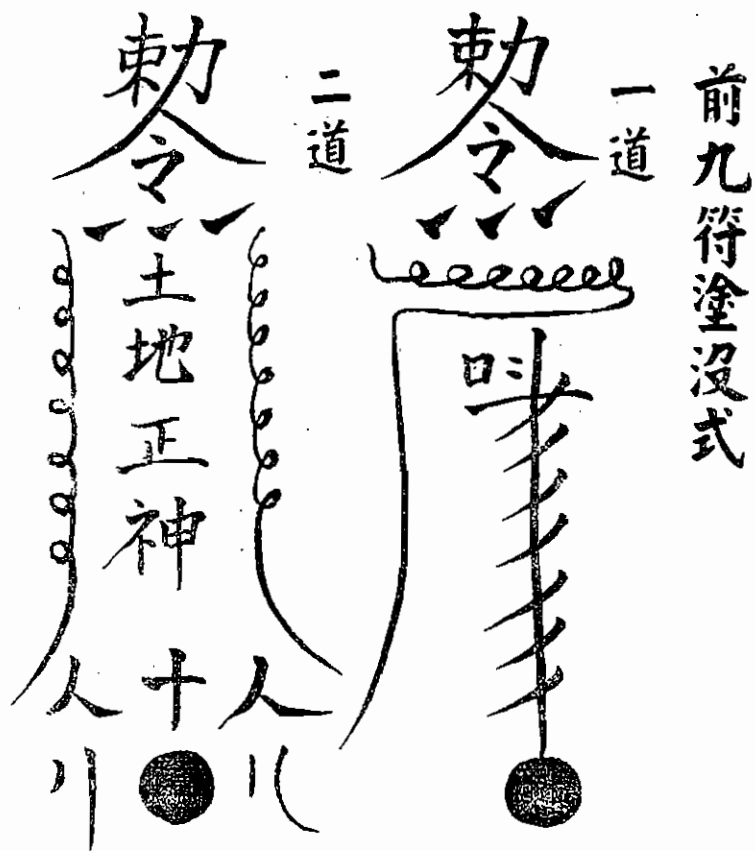 前九符塗没式
一道
勅令
二道
勅令
土地正神
人十人